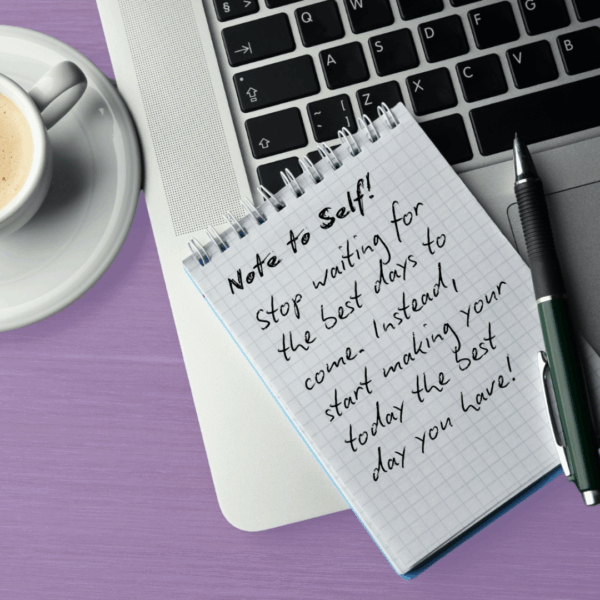 §
Q
W
E
R
T
A
S
D
F
G
Z
X
C
V
B
Note to Self!
Stop waiting for
the best days to
come. Instead,
start making your
today the best
day you have!